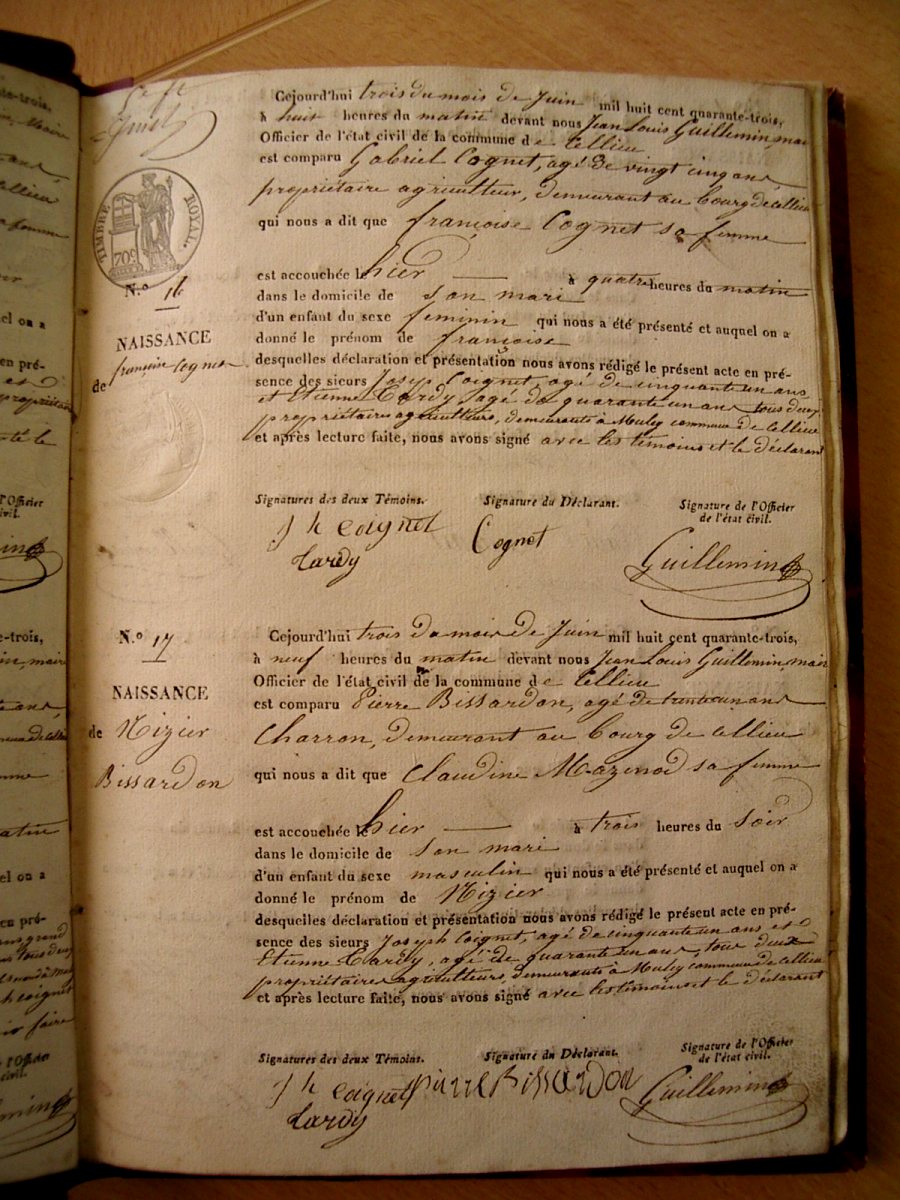 Cejourd'hui trois du mois de Juin mil huit cent quarante-trois,
à huit heures du matin devant nous Jean Louis Guillemin, mai
Officier de l'état civil de la commune de Cellieu
est comparu Gabriel Cognet, agé de vingt cinq ans
propriétaire agriculteur, demeurant au bourg de Cellieu
qui nous a dit que françoise Cognet sa femme
TIMBRE ROYAL
70c
N.º 16
NAISSANCE
de françoise Cognet
est accouchée le hier à quatre heures du matin
dans le domicile de son mari
d'un enfant du sexe feminin qui nous a été présenté et auquel on a
donné le prénom de françoise
desquelles déclaration et présentation nous avons rédigé le présent acte en pré-
sence des sieurs Joseph Coignet, agé de cinquante un ans
et Etienne Tardy, agé de quarante un ans, tous deux
propriétaires agriculteurs, demeurants à Muley commune de Cellieu
et après lecture faite, nous avons signé avec les témoins et le déclarant
Signatures des deux Témoins. Signature du Déclarant. Signature de l'Officier
de l'état civil.
J h Coignet
Tardy
Cognet
Guillemin
N.º 17
NAISSANCE
de Nizier
Bissardon
Cejourd'hui trois du mois de Juin mil huit cent quarante-trois,
à neuf heures du matin devant nous Jean Louis Guillemin, mair
Officier de l'état civil de la commune de Cellieu
est comparu Pierre Bissardon, agé de trente un ans
Charron, demeurant au bourg de Cellieu
qui nous a dit que Claudine Mazenod sa femme
est accouchée le hier à trois heures du soir
dans le domicile de son mari
d'un enfant du sexe masculin qui nous a été présenté et auquel on a
donné le prénom de Nizier
desquelles déclaration et présentation nous avons rédigé le présent acte en pré-
sence des sieurs Joseph Coignet, agé de cinquante un ans et
Etienne Tardy, agé de quarante un ans, tous deux
propriétaires agriculteurs, demeurants à Muley commune de Cellieu
et après lecture faite, nous avons signé avec les témoins et le déclarant
Signatures des deux Témoins. Signature du Déclarant. Signature de l'Officier
de l'état civil.
J h Coignet
Tardy
Pierre Bissardon
Guillemin